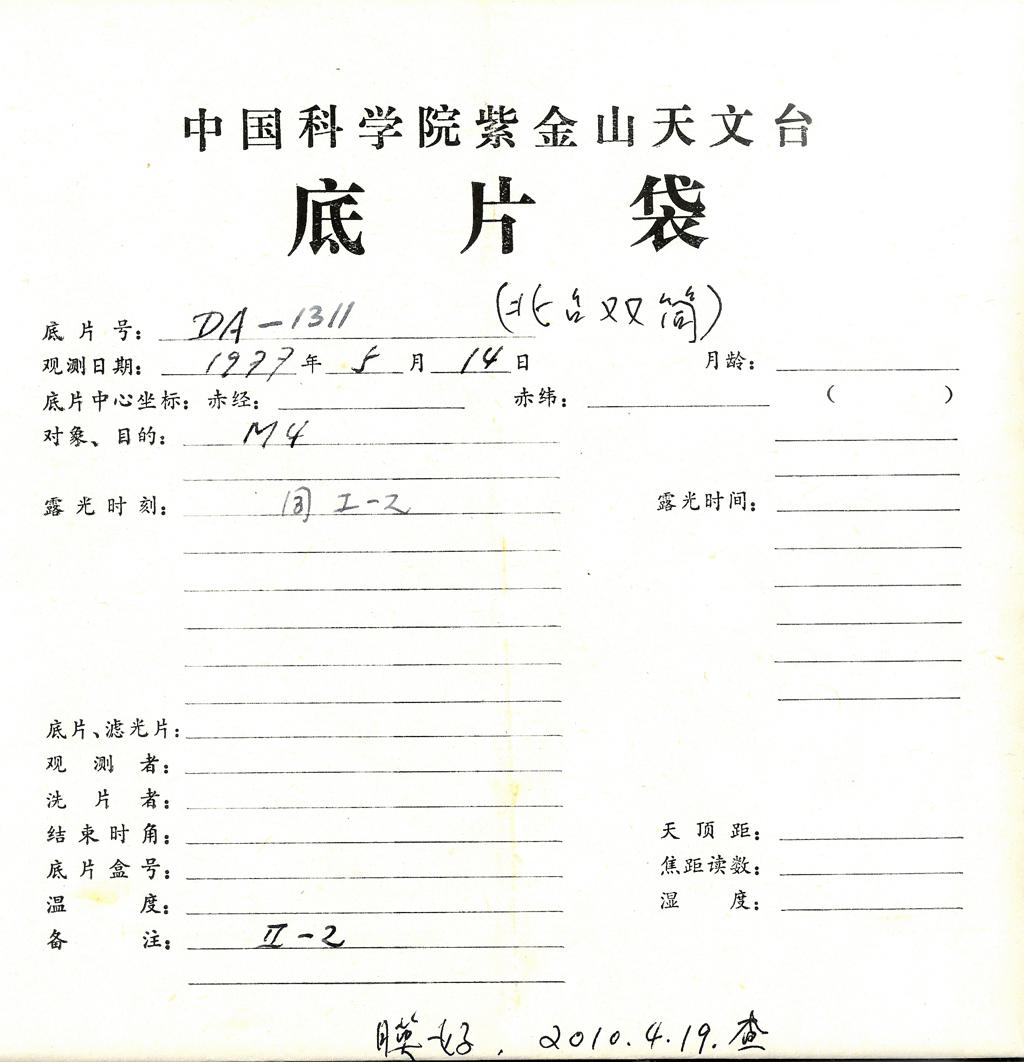 中国科学院紫金山天文台
底片袋
(北台双筒)
底片号: DA-1311
观测日期: 1977年 5月 14日 月龄:
底片中心坐标: 赤经: 赤纬: ( )
对象、目的: M4
露光时刻: 同 I-2 露光时间:
底片、滤光片:
观测者:
洗片者:
结束时角: 天顶距:
底片盒号: 焦距读数:
温度: 湿度:
备注: II-2
膜好, 2010.4.19.查